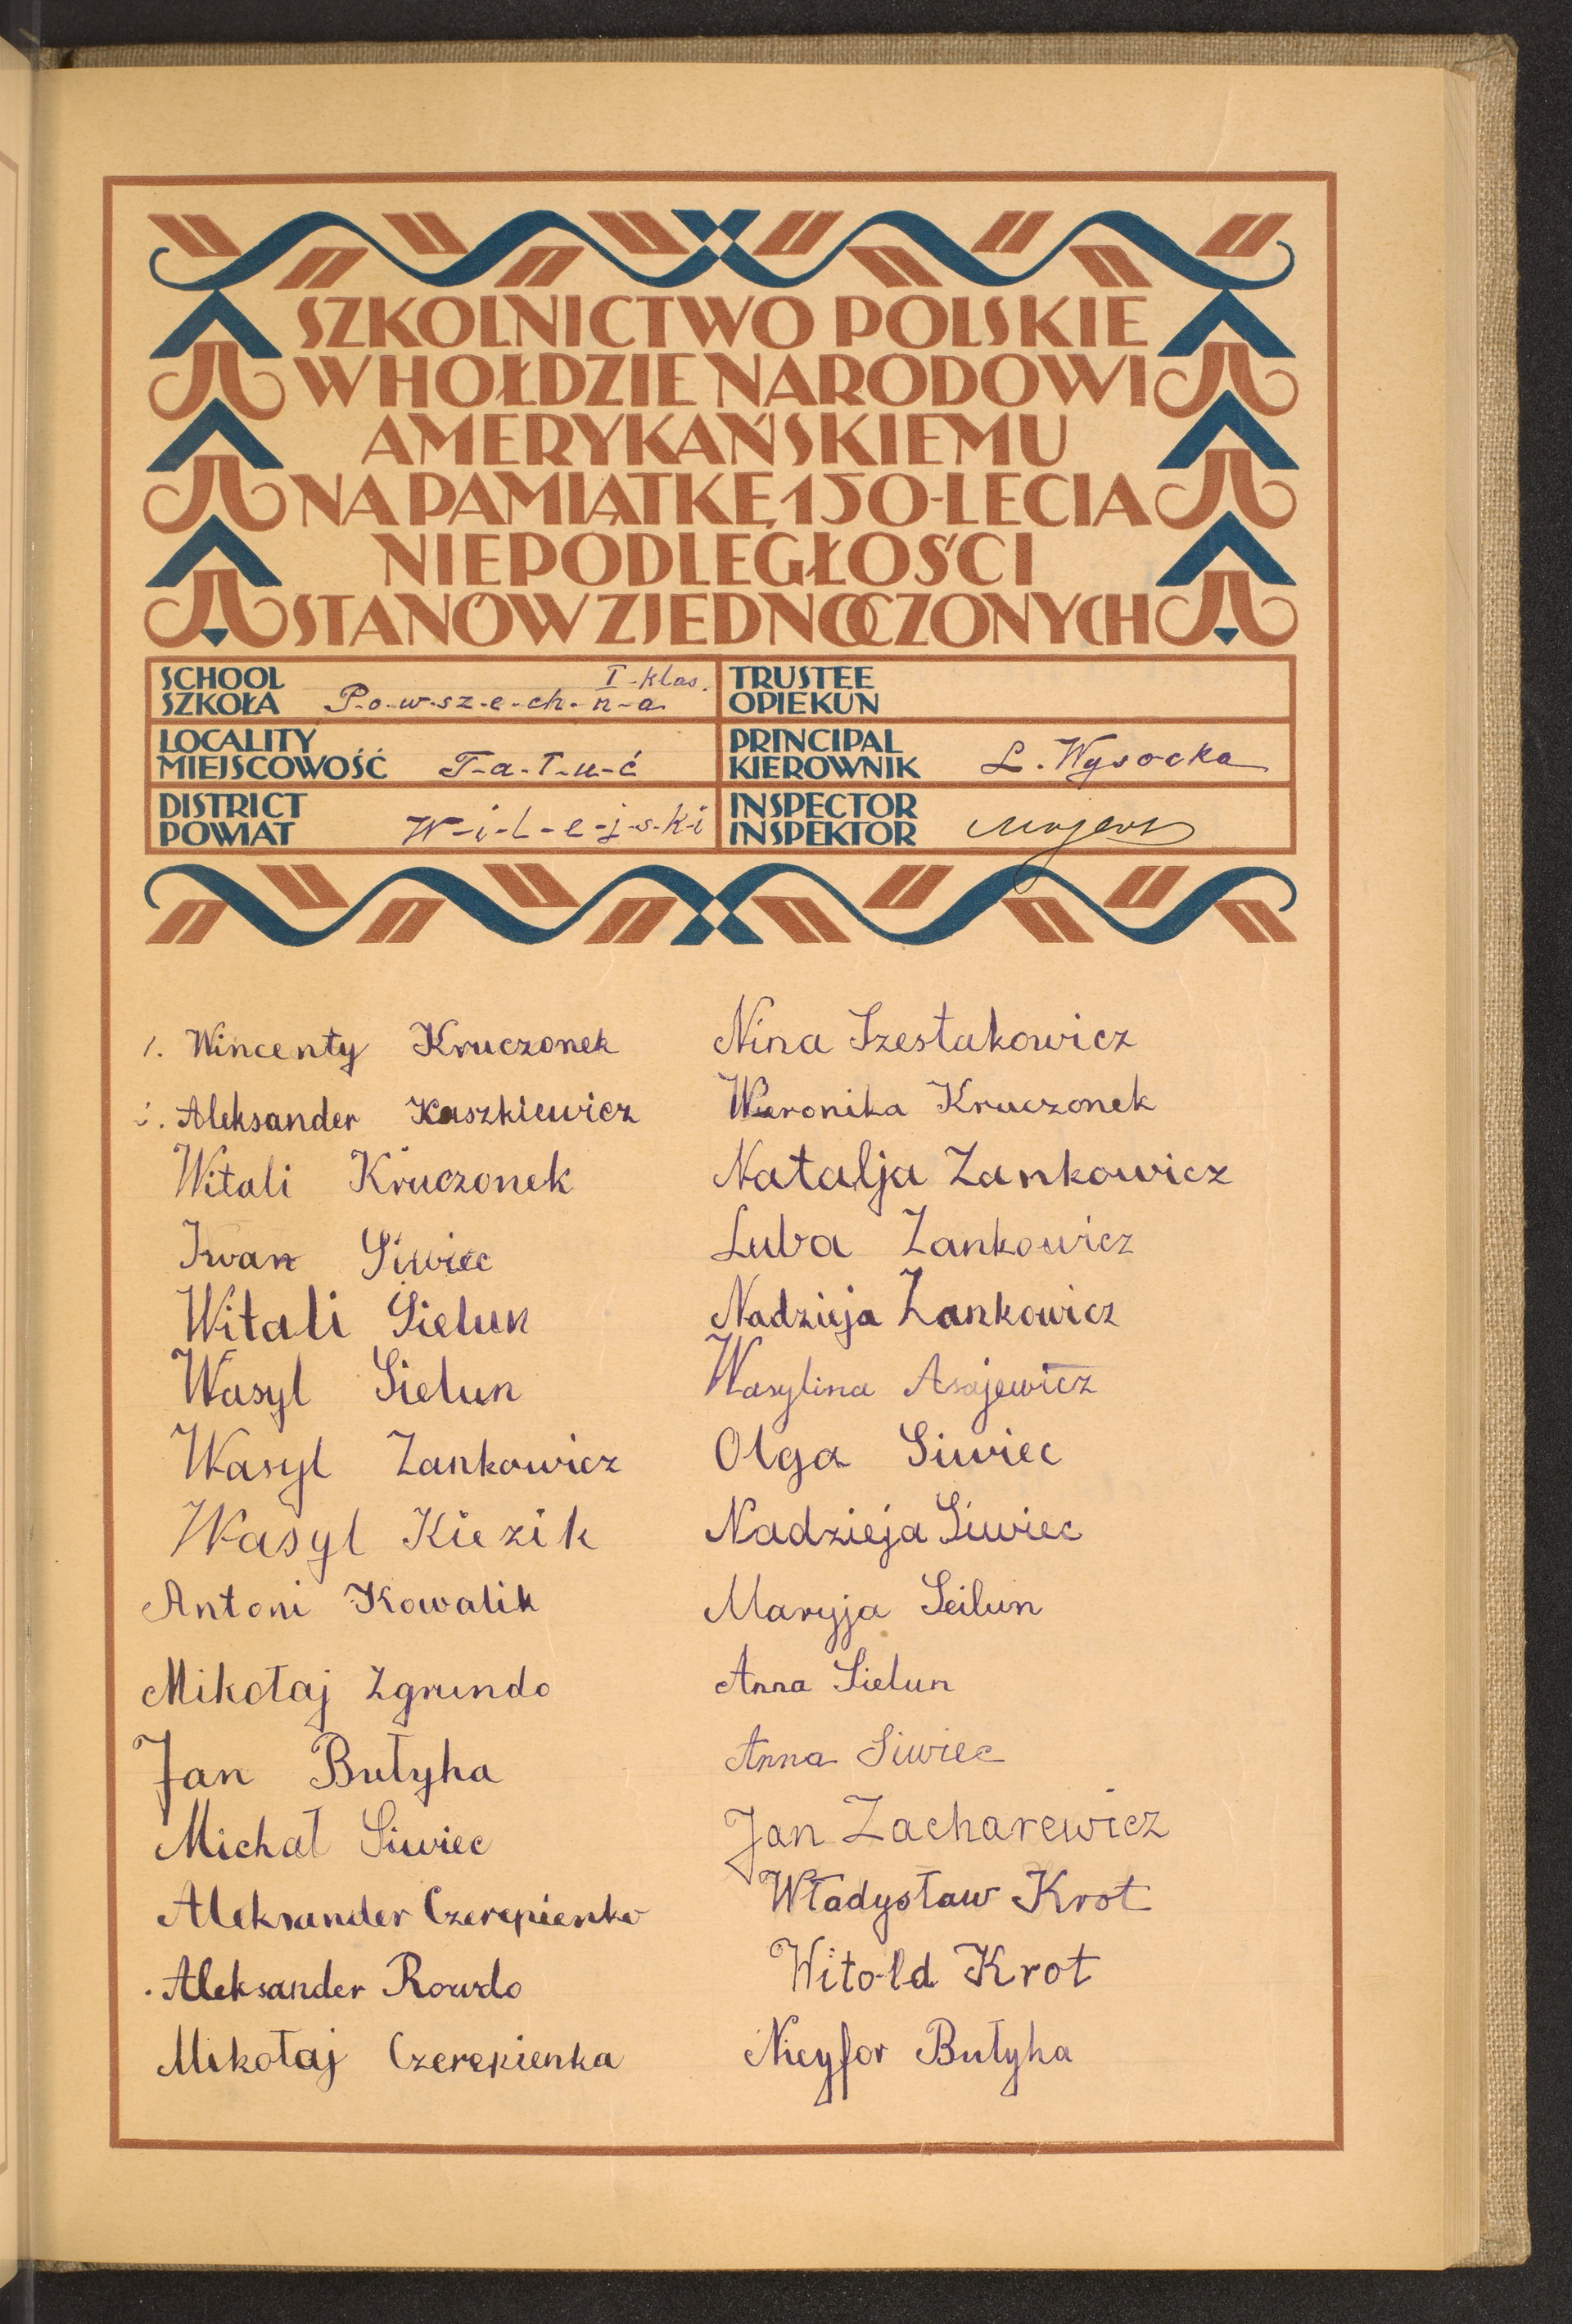 SZKOLNICTWO POLSKIE
W HOŁDZIE NARODOWI
AMERYKAŃSKIEMU
NA PAMIĄTKĘ 150-LECIA
NIEPODLEGŁOŚCI
STANÓW ZJEDNOCZONYCH
SCHOOL
SZKOŁA
I-klas.
P-o-w-sz-e-ch-n-a
TRUSTEE
OPIEKUN
LOCALITY
MIEJSCOWOŚĆ
T-a-T-u-ć
PRINCIPAL
KIEROWNIK
L. Wysocka
DISTRICT
POWIAT
W-i-l-e-j-s-k-i
INSPECTOR
INSPEKTOR
1. Wincenty Kruczonek
2. Aleksander Kaszkiewicz
Witali Kruczonek
Iwan Siwiec
Witali Sielun
Wasyl Sielun
Wasyl Zankowicz
Wasyl Kiezik
Antoni Kowalik
Mikołaj Zgrundo
Jan Bułyha
Michał Siwiec
Aleksander Czerepienko
Aleksander Rowdo
Mikołaj Czerepienka
Nina Szestakowicz
Wieronika Kruczonek
Natalja Zankowicz
Luba Zankowicz
Nadzieja Zankowicz
Wasylina Asajewicz
Olga Siwiec
Nadzieja Siwiec
Maryja Seilun
Anna Sielun
Anna Siwiec
Jan Zacharewicz
Władysław Krot
Witold Krot
Nicyfor Bułyha